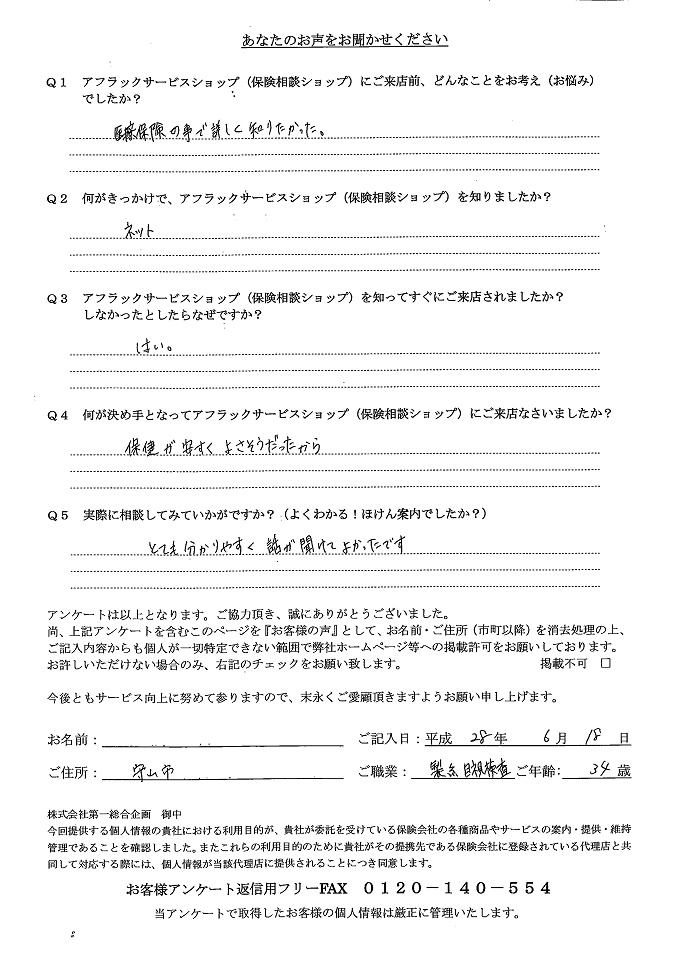 あなたのお声をお聞かせください
Q1 アフラックサービスショップ（保険相談ショップ）にご来店前、どんなことをお考え（お悩み）
でしたか？
医療保険の事で詳しく知りたかった。
Q2 何がきっかけで、アフラックサービスショップ（保険相談ショップ）を知りましたか？
ネット
Q3 アフラックサービスショップ（保険相談ショップ）を知ってすぐにご来店されましたか？
しなかったとしたらなぜですか？
はい。
Q4 何が決め手となってアフラックサービスショップ（保険相談ショップ）にご来店なさいましたか？
保健が安すくよさそうだったから
Q5 実際に相談してみていかがですか？（よくわかる！ほけん案内でしたか？）
とても分かりやすく話が聞けてよかったです
アンケートは以上となります。ご協力頂き、誠にありがとうございました。
尚、上記アンケートを含むこのページを『お客様の声』として、お名前・ご住所（市町以降）を消去処理の上、
ご記入内容からも個人が一切特定できない範囲で弊社ホームページ等への掲載許可をお願いしております。
お許しいただけない場合のみ、右記のチェックをお願い致します。 掲載不可 □
今後ともサービス向上に努めて参りますので、末永くご愛顧頂きますようお願い申し上げます。
お名前： ご記入日：平成 28年 6月 18日
ご住所： 守山市 ご職業： 製糸目視検査 ご年齢： 34歳
株式会社第一総合企画 御中
今回提供する個人情報の貴社における利用目的が、貴社が委託を受けている保険会社の各種商品やサービスの案内・提供・維持
管理であることを確認しました。またこれらの利用目的のために貴社がその提携先である保険会社に登録されている代理店と共
同して対応する際には、個人情報が当該代理店に提供されることにつき同意します。
お客様アンケート返信用フリーFAX 0120－140－554
当アンケートで取得したお客様の個人情報は厳正に管理いたします。